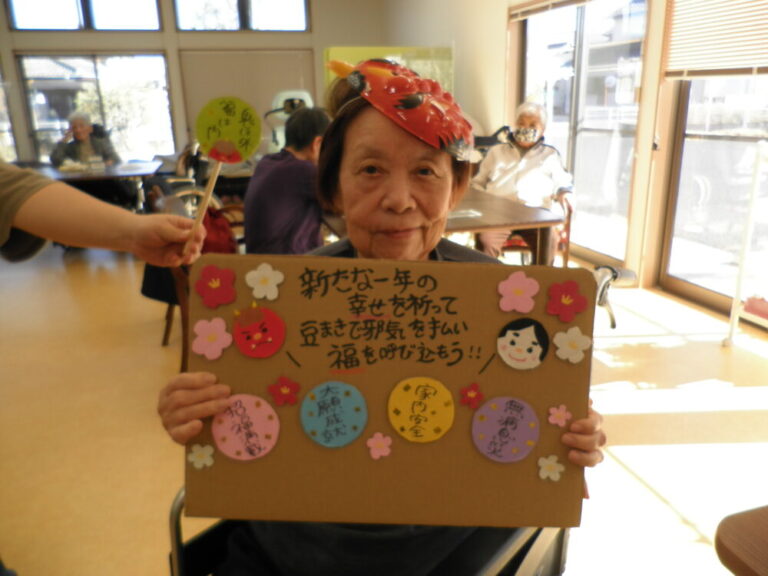 新たな一年の
幸せを祈って
豆まきで邪気を払い
福を呼び込もう!!
招福満載
大願成就
家内安全
無病息災